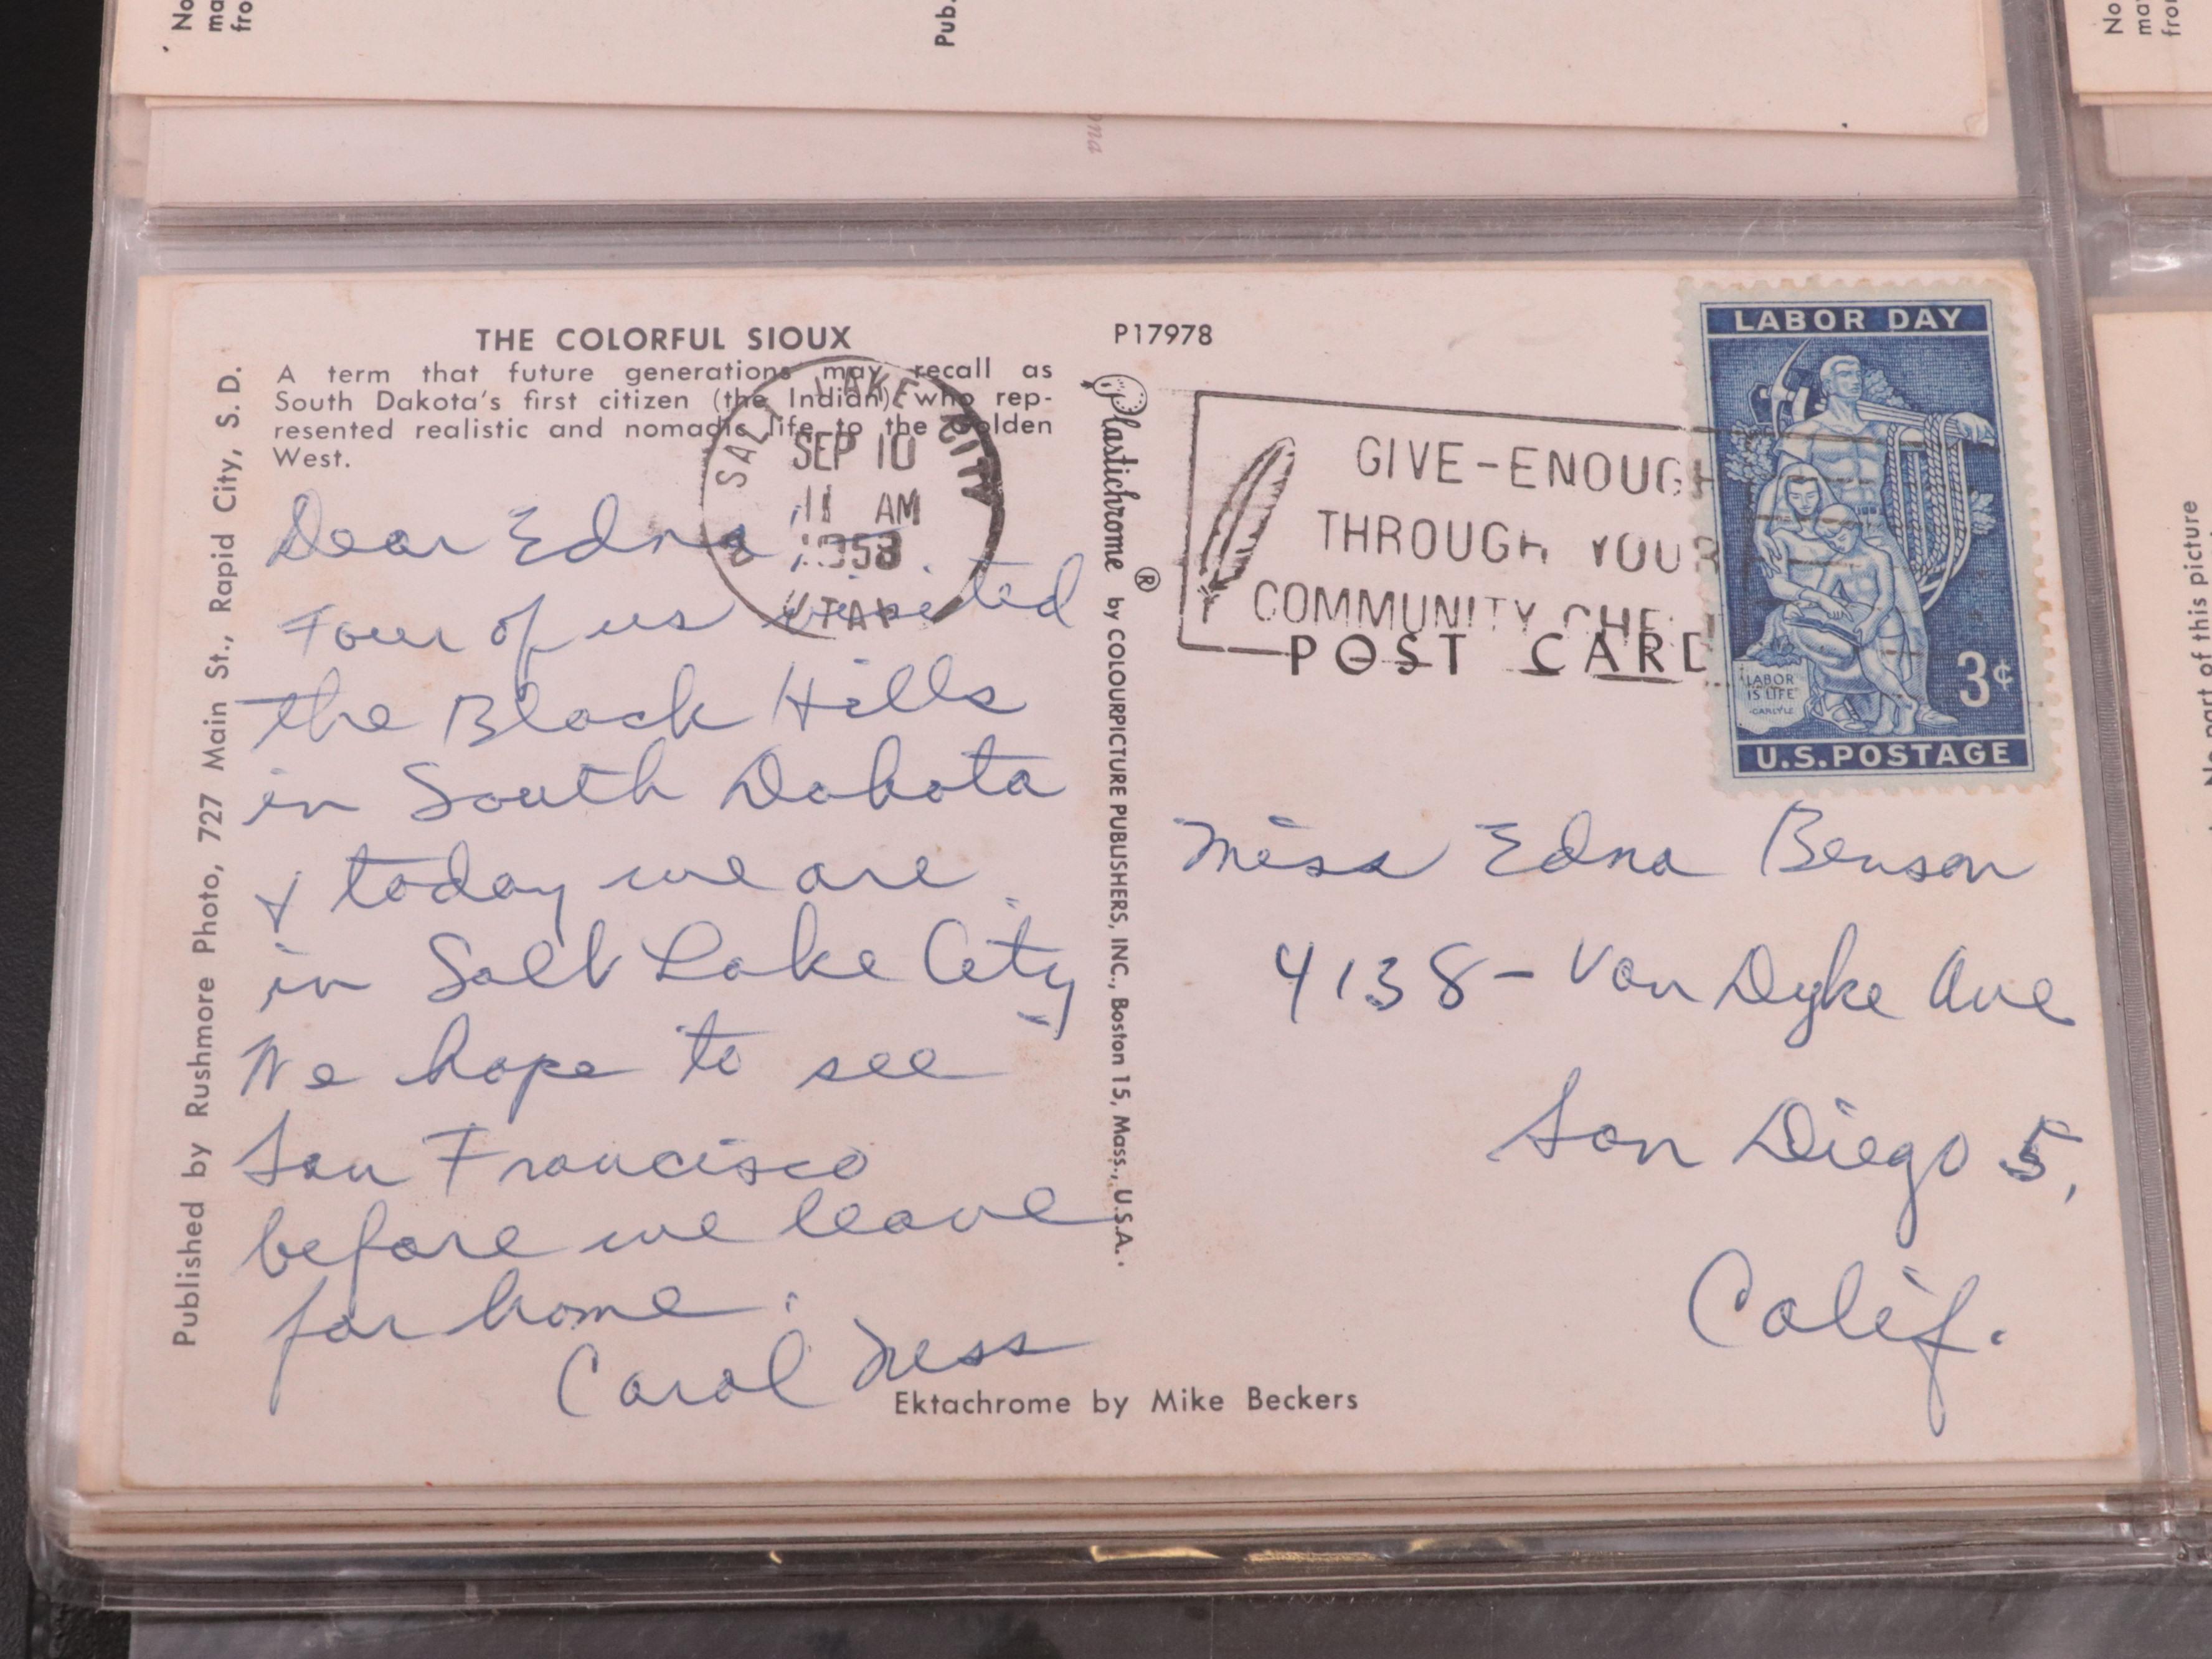 No
ma
fro
Pub.
ona
No
may
from
THE COLORFUL SIOUX
A term that future generations may recall as
South Dakota's first citizen (the Indian) who rep-
resented realistic and nomadic life to the Golden
West.
Published by Rushmore Photo, 727 Main St., Rapid City, S. D.
SALT LAKE CITY
SEP 10
11 AM
1958
UTAH
Dear Edna,
Four of us visited
the Black Hills
in South Dakota
& today we are
in Salt Lake City
We hope to see
San Francisco
before we leave
for home.
Carol Ness
Ektachrome by Mike Beckers
P17978
Plastichrome ® by COLOURPICTURE PUBLISHERS, INC., Boston 15, Mass., U.S.A.
GIVE-ENOUGH
THROUGH YOUR
COMMUNITY CHE
POST CARD
LABOR DAY
LABOR
IS LIFE"
-CARLYLE
3¢
U.S.POSTAGE
Miss Edna Benson
4138- Van Dyke Ave
San Diego 5,
Calif.
No part of this picture